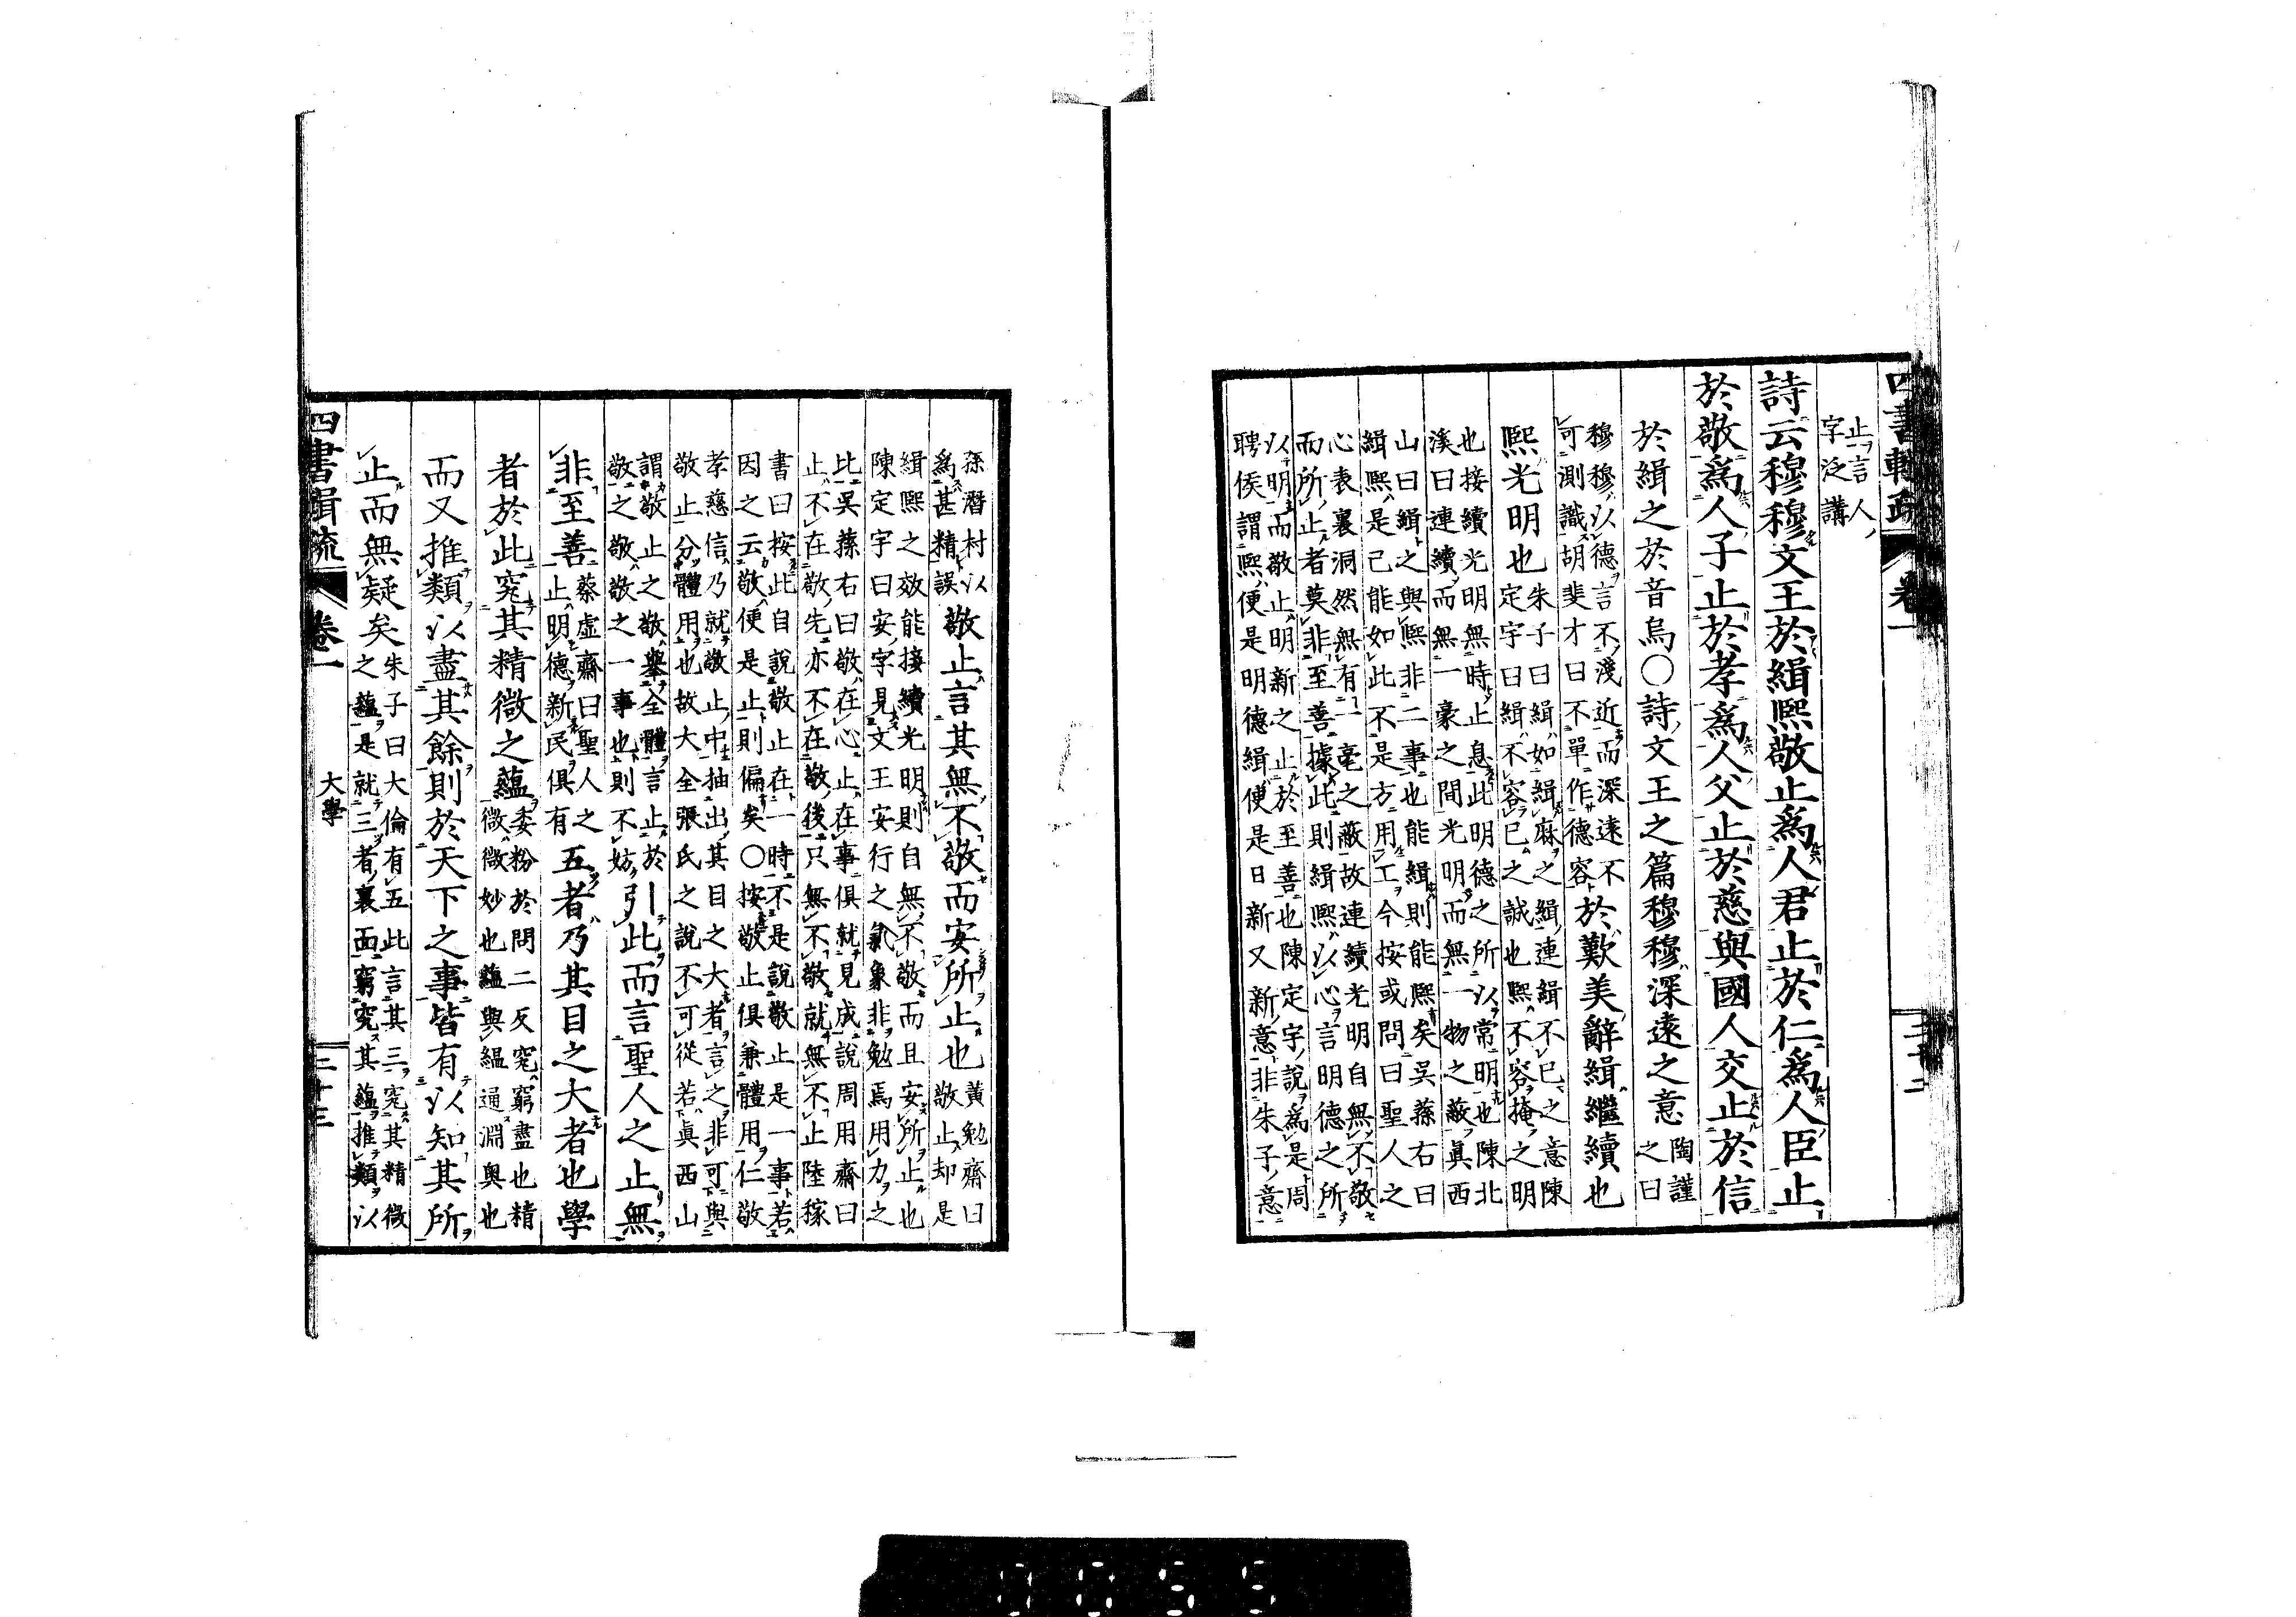 四書輯疏 卷一 二十二
止言人
字泛講
詩云穆穆文王於緝熙敬止爲人君止於仁爲人臣止
於敬爲人子止於孝爲人父止於慈與國人交止於信
於緝之於音烏○詩文王之篇穆穆深遠之意
陶謹
之曰
穆穆以德言不淺近而深遠不
可測識胡斐才曰不單作德容
於歎美辭緝繼續也
熙光明也
朱子曰緝如緝麻之緝連緝不已之意陳
定宇曰緝不容已之誠也熙不容掩之明
也接續光明無時止息此明德之所以常明也陳北
溪曰連續而無一豪之間光明而無一物之蔽眞西
山曰緝之與熙非二事也能緝則能熙矣吳蓀右曰
緝熙是已能如此不是方用工今按或問曰聖人之
心表裏洞然無有一毫之蔽故連續光明自無不敬
而所止者莫非至善據此則緝熙以心言明德之所
以明而敬止明新之止於至善也陳定宇說爲是周
聘侯謂熙便是明明德緝便是日新又新意非朱子意
孫潛村以
爲甚精誤
敬止言其無不敬而安所止也
黃勉齋曰
敬止却是
緝熙之效能接續光明則自無不敬而且安所止也
陳定宇曰安字見文王安行之氣象非勉焉用力之
比吳蓀右曰敬在心止在事俱就見成說周用齋曰
止不在敬先亦不在敬後只無不敬就無不止陸稼
書曰按此自說敬止在一時不是說敬止是一事若
因之云敬便是止則偏矣○按敬止俱兼體用仁敬
孝慈信乃就敬止中抽出其目之大者言之非可與
敬止分體用也故大全張氏之說不可從若眞西山
謂敬止之敬舉全體言止於
敬之敬敬之一事也則不妨
引此而言聖人之止無
非至善
蔡虛齋曰聖人之
止明德新民俱有
五者乃其目之大者也學
者於此究其精微之蘊
委粉於問二反究窮盡也精
微微妙也蘊與縕通淵奧也
而又推類以盡其餘則於天下之事皆有以知其所
止而無疑矣
朱子曰大倫有五此言其三究其精微
之蘊是就三者裏面窮究其蘊推類以
四書輯疏 卷一 大學 二十三